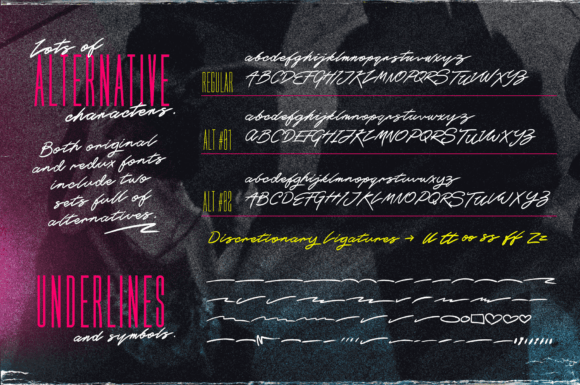 Lots of
ALTERNATIVE
characters.
Both original
and redux fonts
include two
sets full of
alternatives.
REGULAR
abcdefghijklmnopqrstuvwxyz
ABCDEFGHIJKLMNOPQRSTUVWXYZ
ALT #01
abcdefghijklmnopqrstuvwxyz
ABCDEFGHIJKLMNOPQRSTUVWXYZ
ALT #02
abcdefghijklmnopqrstuvwxyz
ABCDEFGHIJKLMNOPQRSTUVWXYZ
Discretionary ligatures → ll tt oo ss ff Zz
UNDERLINES
and symbols.